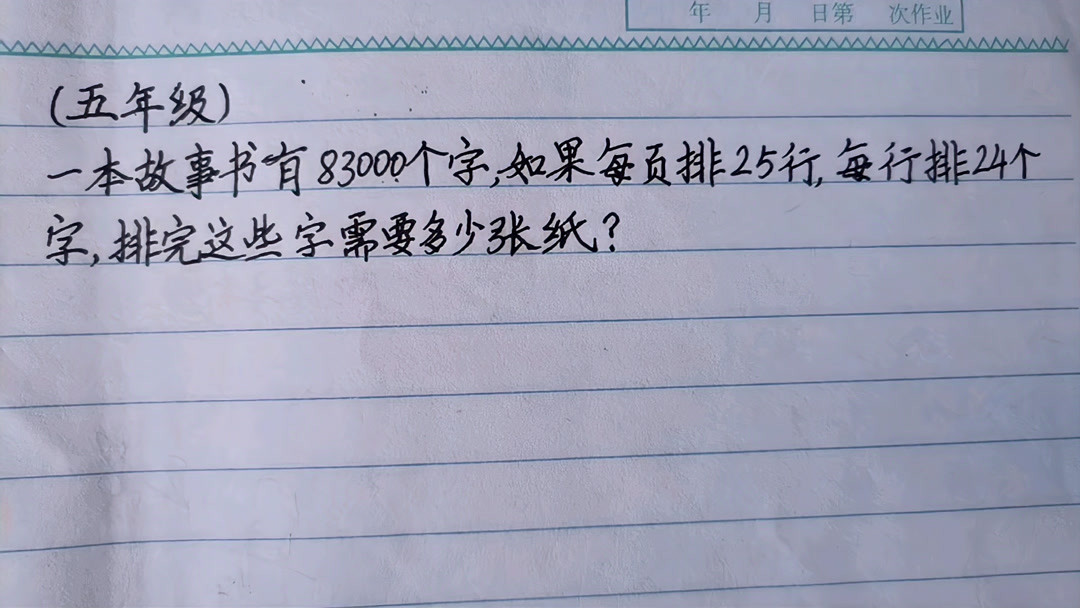 年 月 日第 次作业
(五年级)
一本故事书有83000个字,如果每页排25行,每行排24个
字,排完这些字需要多少张纸?